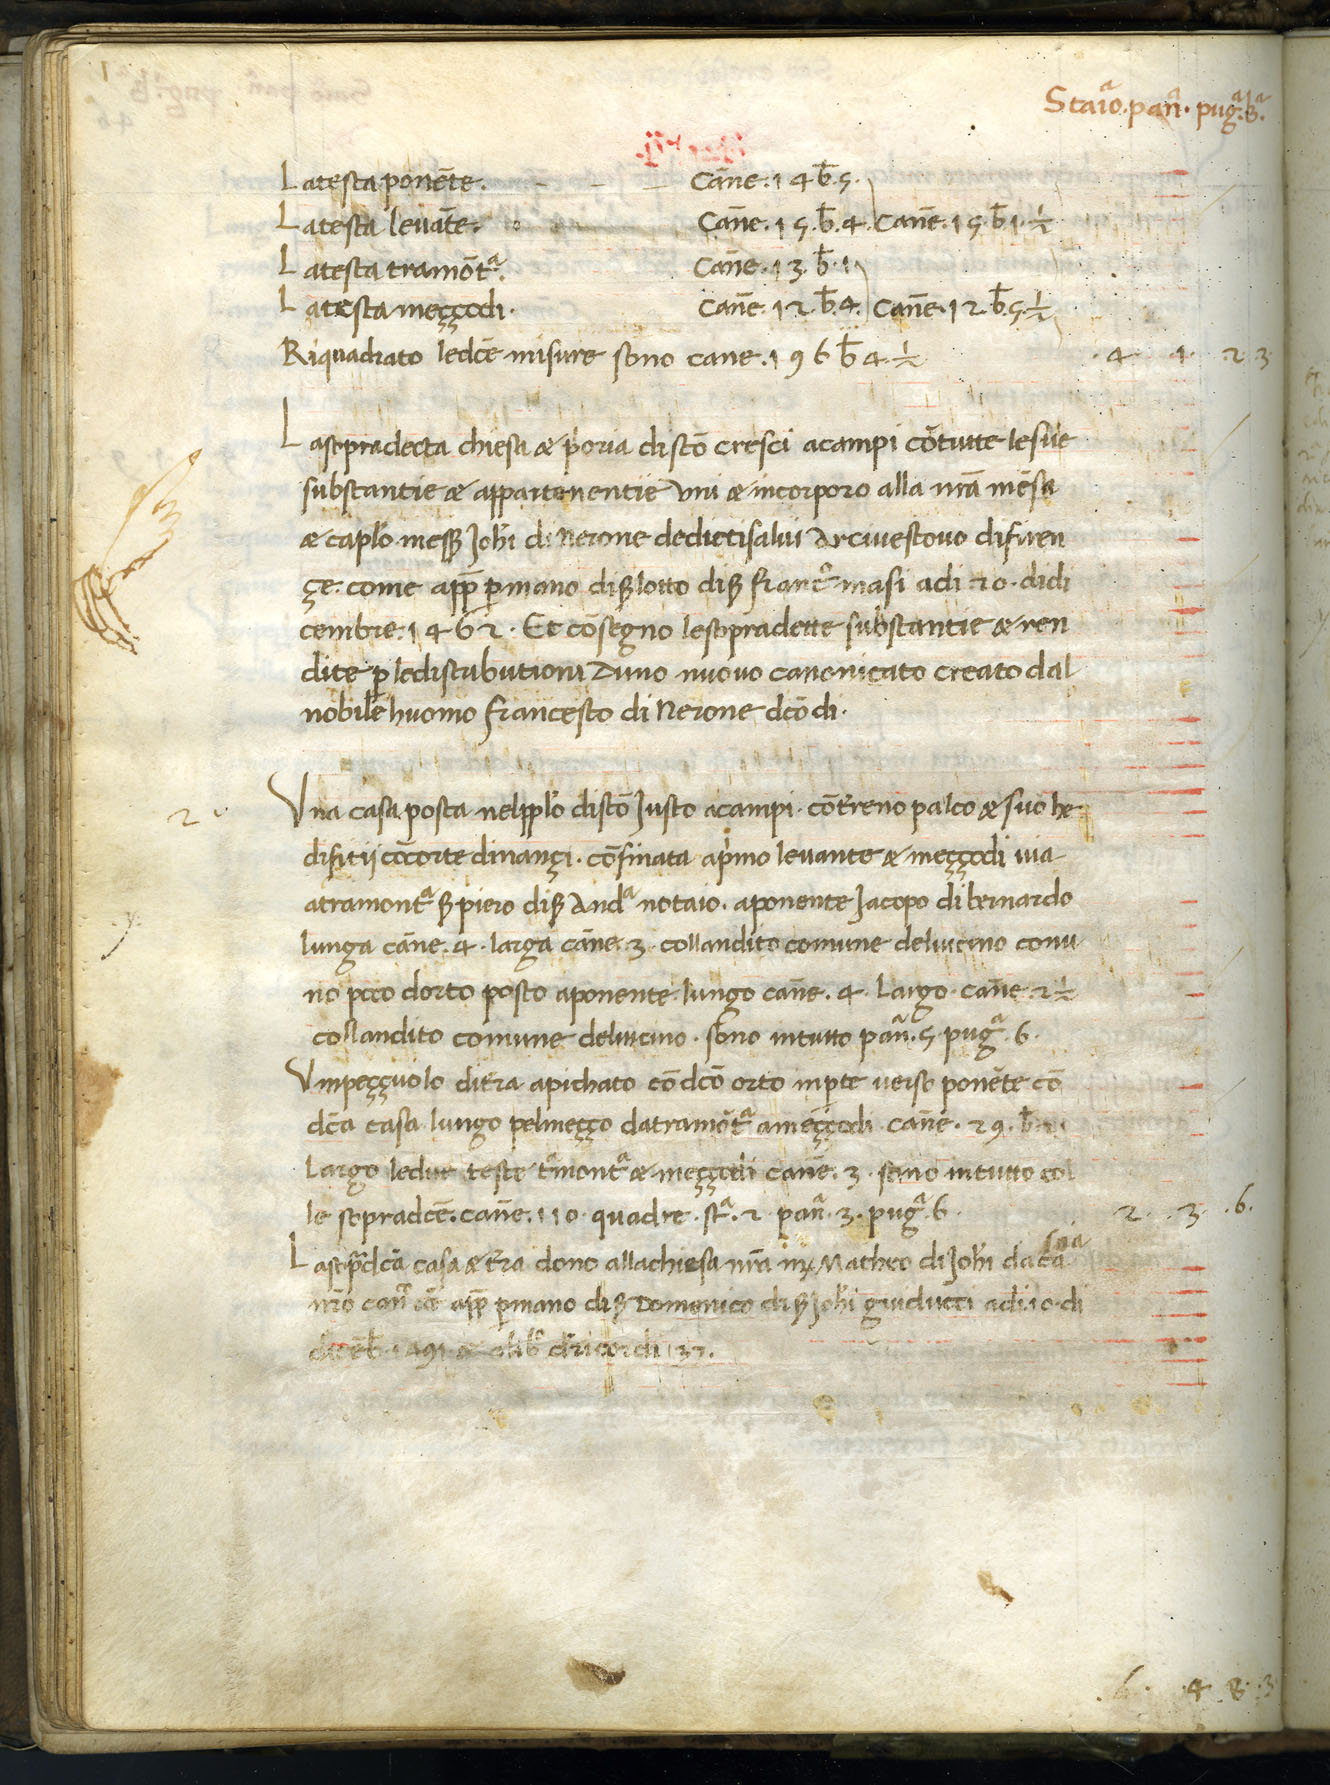 Staiª. panª. pugª. bª.
La testa ponēte. Cāne. 14 b̄. 5.
La testa levāte. Cāne. 15. b̄. 4. Cāne. 15. b̄ 1. ½
La testa tramōtª. Cāne. 13. b̄. 1
La testa meççodi. Cāne. 12. b̄. 4. Cāne. 12 b̄. 5. ½
Riquadrato le dc̄e misure sono cane. 196 b̄ 4. ½ .4. 4. .2 3
La sopradecta chiesa & poria di sc̄o Cresci acampi cō tutte le sue
substantie & appartenentie uni & incorporo alla nr̄a mēsa
& caplo. mess. Joh̄i di Nerone de dietisalvi Arcivescovo di firen
çe. come app̄ p mano di s. lotto di s. francº masi adi 20. di di
cembre. 1462. Et cōsegno le sopradette substantie & ren
dite p le distributioni d uno nuovo canonicato creato dal
nobile huomo francesco di Nerone dc̄o di.
2. Una casa posta nel pplo di sc̄o Justo acampi. cō terreno palco & suo he
difitii cō corte dinançi. cōfinata a pmo levante & meççodi via
a tramontª s. piero di s. Andª notaio. a ponente Jacopo di bernardo
lunga cāne. 4. larga cāne. 3. collandito comune del vicino con u
no pcco dorto posto a ponente lungo cāne. 4. largo. cāne 2 ½
collandito comune del vicino. sono in tutto panª. 5. pugª. 6.
Un peççuolo di tera apichato cō dc̄o orto in pte verso ponēte cō
dc̄a casa. lungo pel meççо da tramōtª a meççodi cāne. 29. b̄.
largo le due teste tmontª & meççodi cāne. 3. sono in tutto col
le sopradc̄e. cāne. 110. quadre. stª. 2. panª. 3. pugª. 6. 2. .3. .6.
La sopdc̄a casa & tera dono alla chiesa nr̄a Matheo di Joh̄i da ca
sua
nr̄o app̄ p mano di s. Domenico di s. Joh̄i giuducci adi. 10. di
1491 & di ricordi 37.
.4. 8. .3.